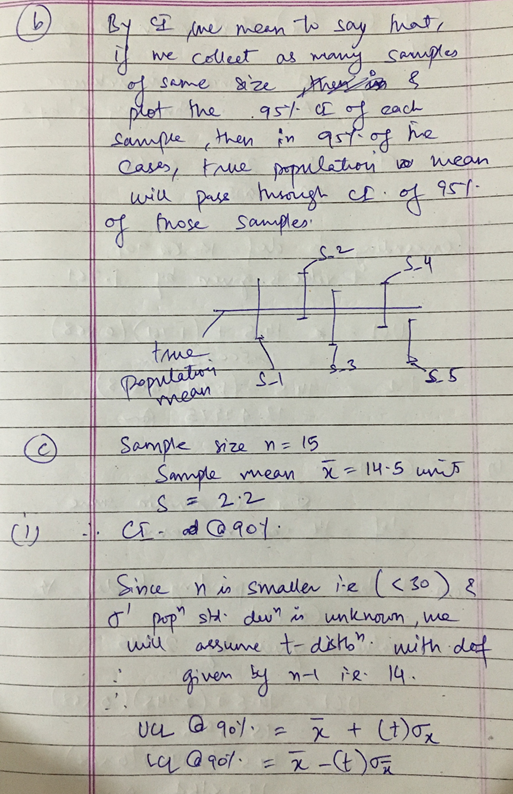 (b) By CI, we mean to say that,
if we collect as many samples
of same size, then in &
plot the 95% CI of each
sample, then in 95% of the
cases, true population mean
will pass through CI. of 95%.
of those samples.
S_2
S_4
true
population
mean
S_1
S_3
S_5
(c) Sample size n = 15
Sample mean x̄ = 14.5 units
S = 2.2
(i) ∴ CI - @ 90%.
Since n is smaller i.e (<30) &
σ' popⁿ std. devⁿ is unknown, we
will assume t-distbⁿ. with dof
∴ given by n-1 i.e. 14.
∴
UCL @ 90%. = x̄ + (t)σx
LCL @ 90%. = x̄ - (t)σx̄